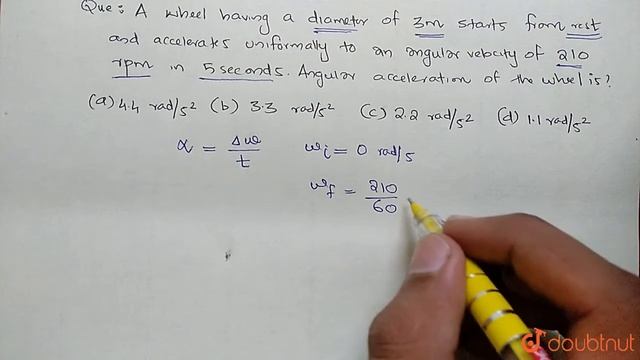 Que: A wheel having a diameter of 3m starts from rest
and accelerates uniformally to an angular velocity of 210
rpm in 5 seconds. Angular acceleration of the wheel is?
(a) 4.4 rad/s² (b) 3.3 rad/s² (c) 2.2 rad/s² (d) 1.1 rad/s²
α = Δω/t ωi = 0 rad/s
ωf = 210/60
doubtnut